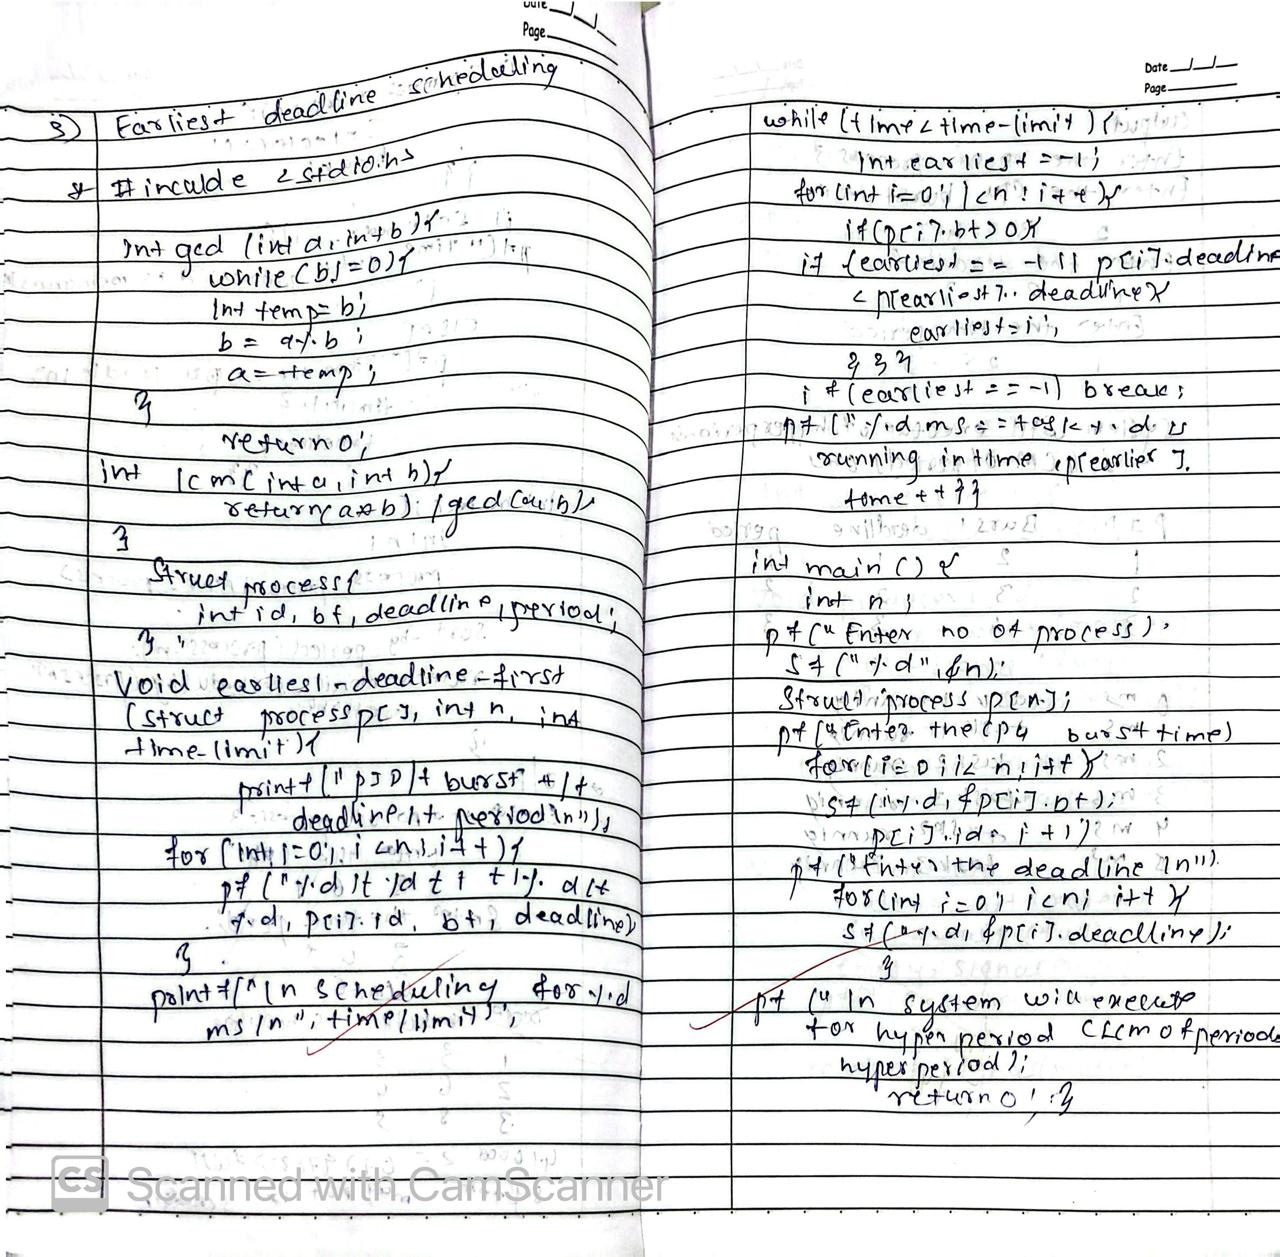 Date
Page
3) Earliest deadline scheduling
# inculde <stdio.h>
int gcd (int a, int b){
while (b!=0){
int temp=b;
b = a%b;
a=temp;
}
return 0;
int lcm(int a, int b){
return(a*b) /gcd(a,b);
}
Struct process{
int id, bt, deadline, period;
};
Void earliest-deadline-first
(struct process p[], int n, int
time-limit){
printf("pID\t burst \t
deadline \t period\n");
for (int i=0; i<n; i++){
pf ("%d \t %d t t t\% d\t
%d, p[i].id, bt, deadline)
}
printf("\n scheduling for %d
ms \n", time/limit);
Date
Page
while (time<time-limit){
int earliest = -1;
for (int i=0; i<n; i++){
if(p[i].bt>0){
if (earliest == -1 || p[i].deadline
< p[earliest].. deadline){
earliest=i;
} } }
if (earliest == -1) break;
pf ("%d ms == task %d is
running in time p[earlier].
tome++}}
int main () {
int n;
pf (" Enter no of process);
sf ("%d", &n);
Struct process p[n];
pf ("Enter the cpu burst time)
for (i=0; i<n; i++){
sf ("%d, &p[i].bt);
p[i].id= i+1;
pf ("Enter the deadline \n").
for(int i=0; i<n; i++){
sf ("%d, &p[i].deadline);
}
pf (" \n system will execute
for hyper period (LCM of periods
hyper period);
return 0; }
CS Scanned with CamScanner